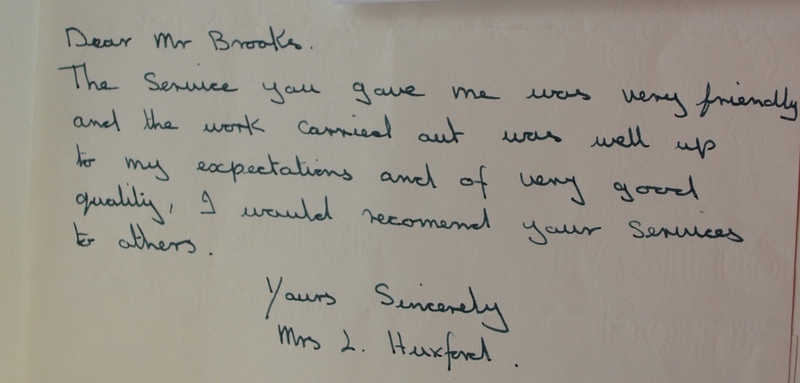 Dear Mr Brooks.
The Service you gave me was very friendly
and the work carried out was well up
to my expectations and of very good
quality, I would recomend your Services
to others.
Yours Sincerely
Mrs L. Huxford.